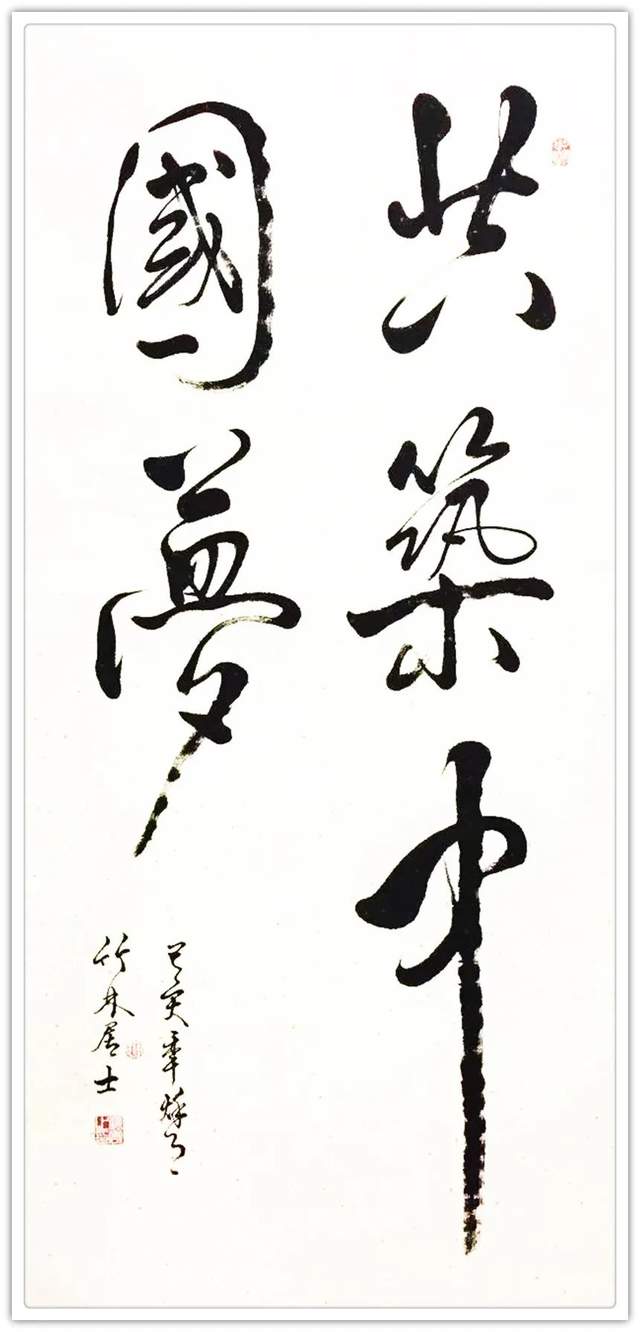 共築中
國夢
己亥年秋月
竹林居士